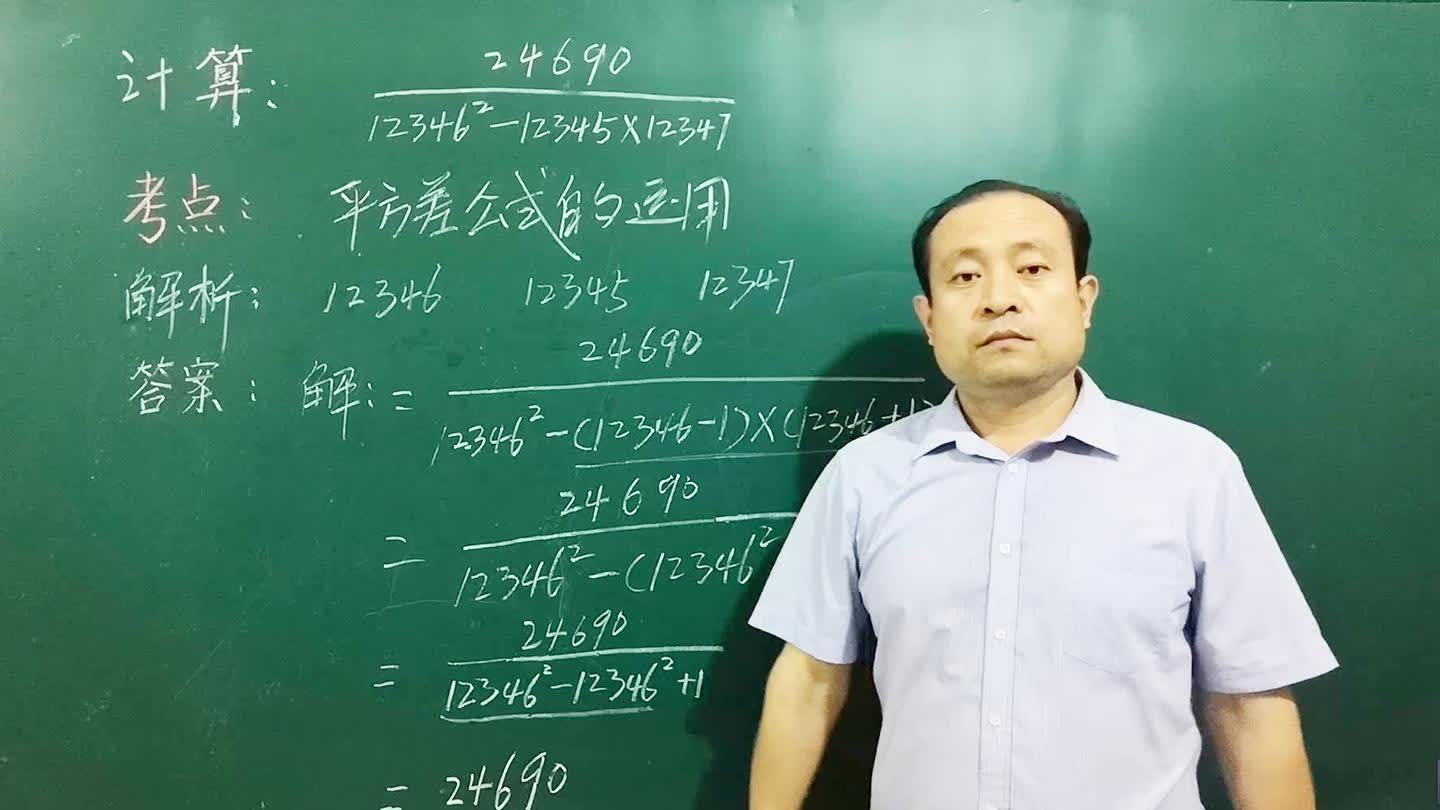 计算: 24690
12346²-12345×12347
考点: 平方差公式的运用
解析: 12346 12345 12347
24690
答案: 解: =
12346²-(12346-1)×(12346+1)
24690
=
12346²-(12346²
24690
=
12346²-12346²+1
= 24690